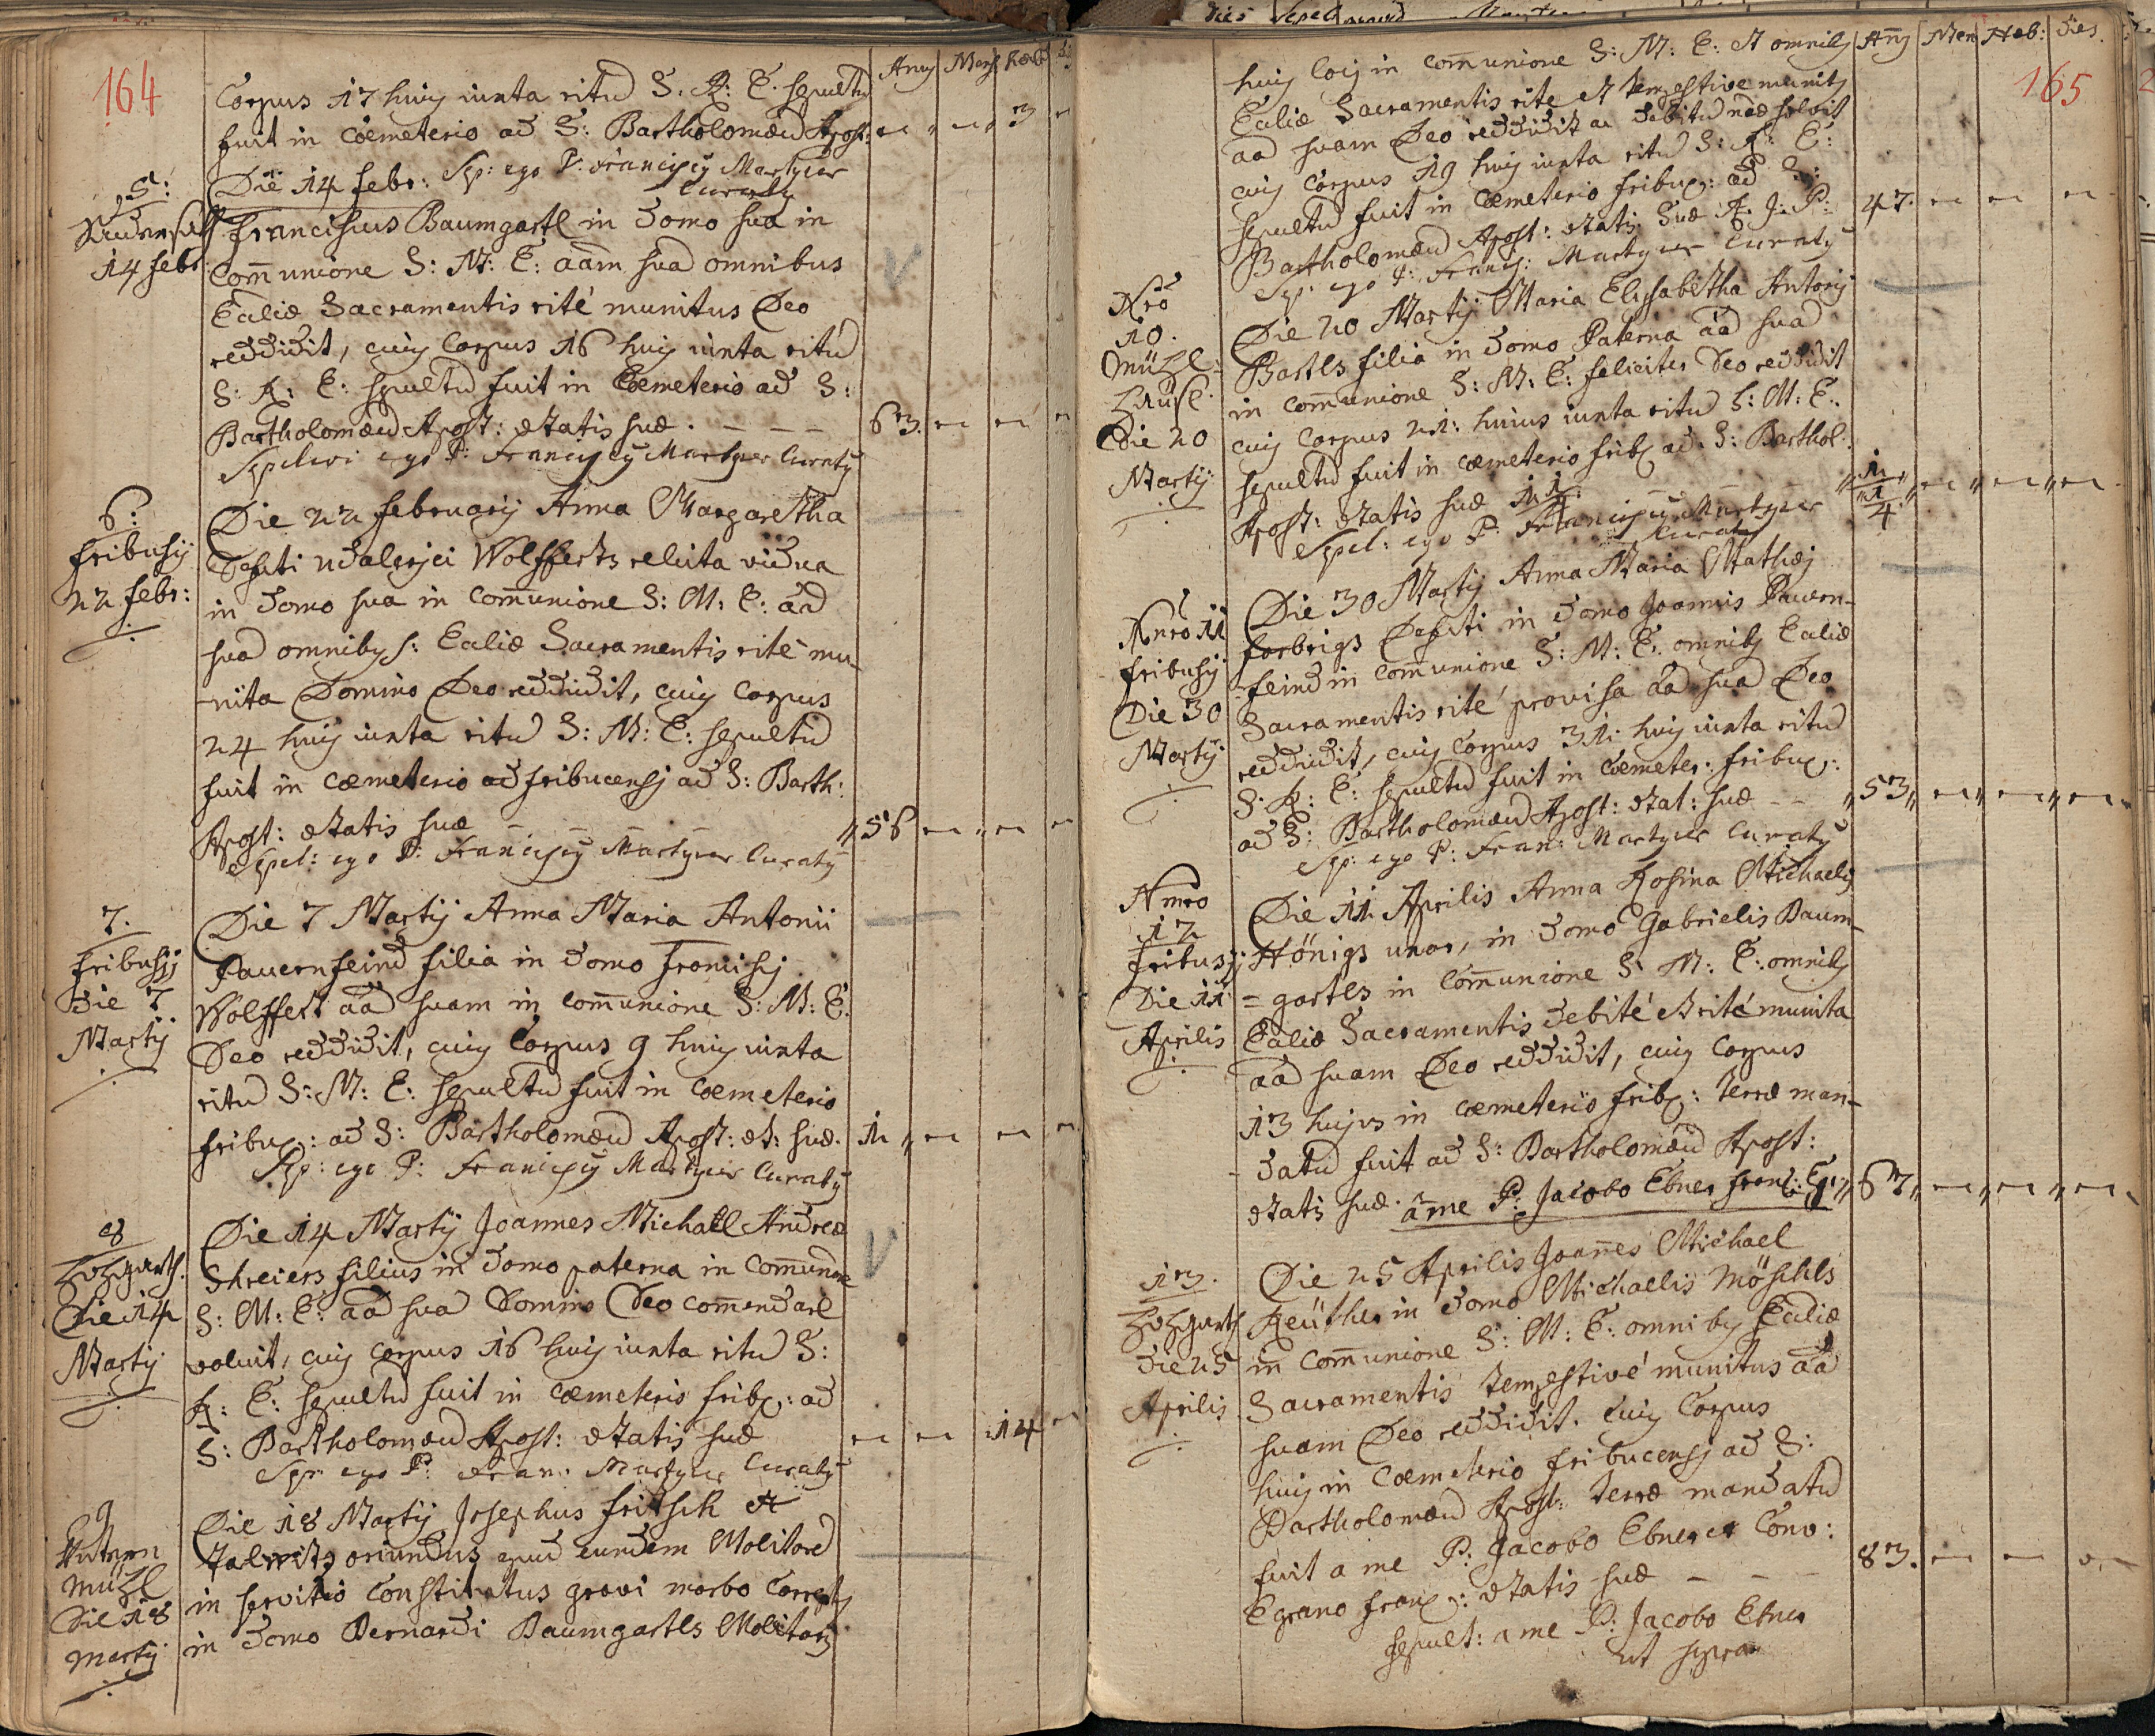 164
Corpus 17 huius iuxta ritū S. R: E. sepultū
fuit in Coemeterio ad S: Bartholomæū Apost:
3
Die 14 febr: Sep: ego P. Franciscȳ Martyer
Curatȳ
5:
14 febr:
Franciscus Baumgartl in domo sua in
Com̄unione S: M: E: aām suā omnibus
Ecc̄liæ Sacramentis rité munitus Deo
reddidit, cuiȳ Corpus 16 huiȳ iuxta ritū
S: R: E: sepultū fuit in Coemeterio ad S:
Bartholomæū Apost: ætatis suæ . – – –
63.
Sepelivi ego P: Franciscȳ Martyer Curatȳ
6:
fribusij
22 febr:
Die 22 februarij Anna Margaretha
Def̄cti Wolfferts relicta vidua
in domo sua in Com̄unione S: M: E: aā
suā omnibȳ S: Ecc̄liæ Sacramentis rité mu-
-nita Domino Deo reddidit, cuiȳ Corpus
24 huiȳ iuxta ritū S: M: E: sepultū
fuit in coemeterio ad fribucensj ad S: Barth:
Apost: ætatis suæ
56
Sepel: ego P: Franciscȳ Martyer Curatȳ
7.
fribusij
Die 7
Martij
Die 7 Martij Anna Maria Antonii
Pauernfeind filia in domo Francisij
Wolffert aā suam in com̄unione S: M: E:
Deo reddidit, cuiȳ Corpus 9 huiȳ iuxta
ritū S: M: E: sepultū fuit in coemeterio
fribuc: ad S: Bartholomæū Apost: æt: suæ.
1
Sep: ego P: Franciscȳ Martyer Curatȳ
8
Die 14
Martij
Die 14 Martij Joannes Michael Andreæ
Schreiers filius in domo paterna in Com̄unione
S: M: E: aā suā Domino Deo com̄endare
voluit, cuiȳ Corpus 16 huiȳ iuxta ritū S:
R: E: sepultū fuit in coemeterio frib: ad
S: Bartholomæū Apost: ætatis suæ
14
Sep: ego P: Fran: Martyer Curatȳ
9
Untern
Mühl
Die 18
Martij
Die 18 Martij Josephus Fritsch
oriundus apud eundem Molitorē
in servitio Constitutus gravi morbo Correptȳ
in domo Bernardi Baumgartls Molitoris
165
huiȳ loci in com̄unione S: M: E: et omnibȳ
Ecc̄liæ Sacramentis rite et tempestive munitȳ
aā suam Deo reddidit ac debitū solvit
cuiȳ Corpus 19 huiȳ iuxta ritū S: R: E:
sepultū fuit in Coemeterio fribuc: ad S:
Bartholomæū Apost: ætatis suæ
47.
Sep: ego P: Francis: Martyer Curatȳ
Nro
10.
Mühl-
häusl.
Die 20
Martij
Die 20 Martij Maria Elisabetha Antonij
Bartls filia in domo Paterna aā suā
in com̄unione S: M: E: feliciter Deo reddidit
cuiȳ Corpus 21: huius iuxta ritū S: M: E:
sepultū fuit in coemeterio frib ad S: Barthol:
Apost: ætatis suæ 1 1/4
1 1/4
Sepel: ego P: Franciscȳ Martyer
Curatȳ
Nnro 11
fribusij
Die 30
Martij
Die 30 Martij Anna Maria Mathæj
forbrigs Def̄cti in domo Joannis Pauern-
-feind in com̄unione S: M: E: omnibȳ Ecc̄liæ
Sacramentis rité provisa aā suā Deo
reddidit, cuiȳ Corpus 31: huiȳ iuxta ritū
S: R: E: sepultū fuit in Coemeter: fribuc:
ad S: Bartholomæū Apost: ætat: suæ – –
53
Sep: ego P: Fran: Martyer Curatȳ
Nmro
12
fribusij
Die 11
Aprilis
Die 11 Aprilis Anna Rosina Michaelis
Hönigs uxor, in domo Gabrielis Baum-
=gartls in Com̄unione S: M: E: omnibȳ
Ecc̄liæ Sacramentis debité et rité munita
aā suam Deo reddidit, cuiȳ Corpus
13 hujus in coemeterio frib: terræ man-
datū fuit ad S: Bartholomæū Apost:
ætatis suæ. a me P: Jacobo Ebner
67
13.
Die 25
Aprilis
Die 25 Aprilis Joan̄es Michael
Reüther in domo Michaelis Möschls
in com̄unione S: M: E: omnibȳ Ecc̄liæ
Sacramentis tempestivé munitus aā
suam Deo reddidit. Cuiȳ Corpus
huiȳ in Coemeterio fribucensj ad S:
Bartholomæū Apost: terræ mandatū
fuit a me P: Jacobo Ebner Conv:
Egrano franc: ætatis suæ – – –
83.
sepult: a me P: Jacobo Ebner
ut supra